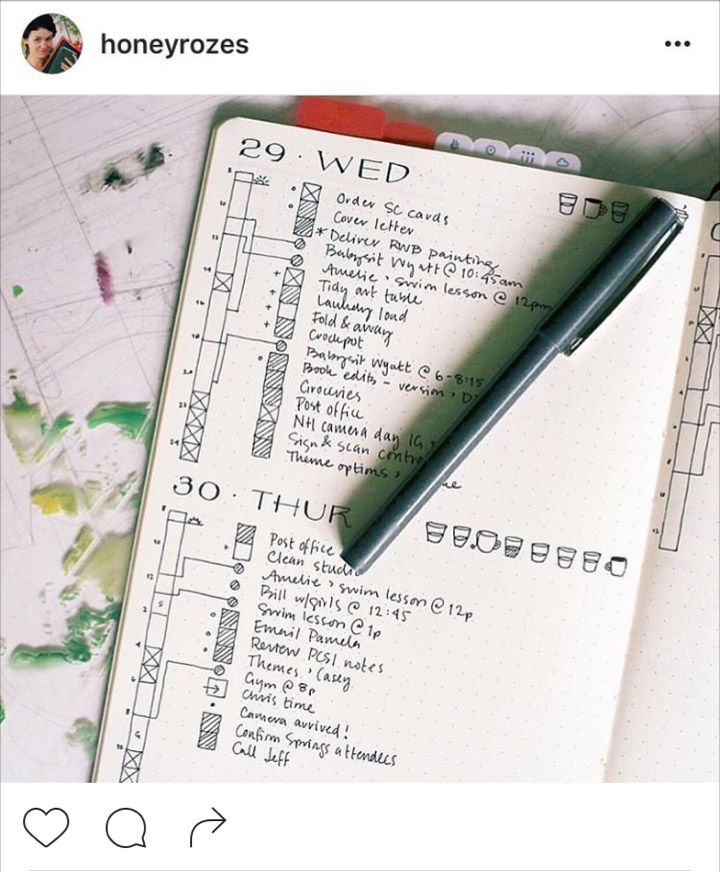 honeyrozes
29 · WED
Order SC cards
Cover letter
* Deliver RWB painting
Babysit Wyatt @ 10:45am
Amelie > swim lesson @ 12pm
Tidy art table
Laundry load
Fold & away
Crockpot
Babysit Wyatt @ 6-8:15
Book edits - version >
Groceries
Post office
NH camera day IG
Sign & scan
Theme options >
30 · THUR
Post office
Clean studio
Amelie > swim lesson @ 12p
Bill w/girls @ 12:45
Swim lesson @ 1p
Email Pamela
Review PCSI notes
Themes > Casey
Gym @ 8p
Chris time
Camera arrived!
Confirm Springs attendees
Call Jeff